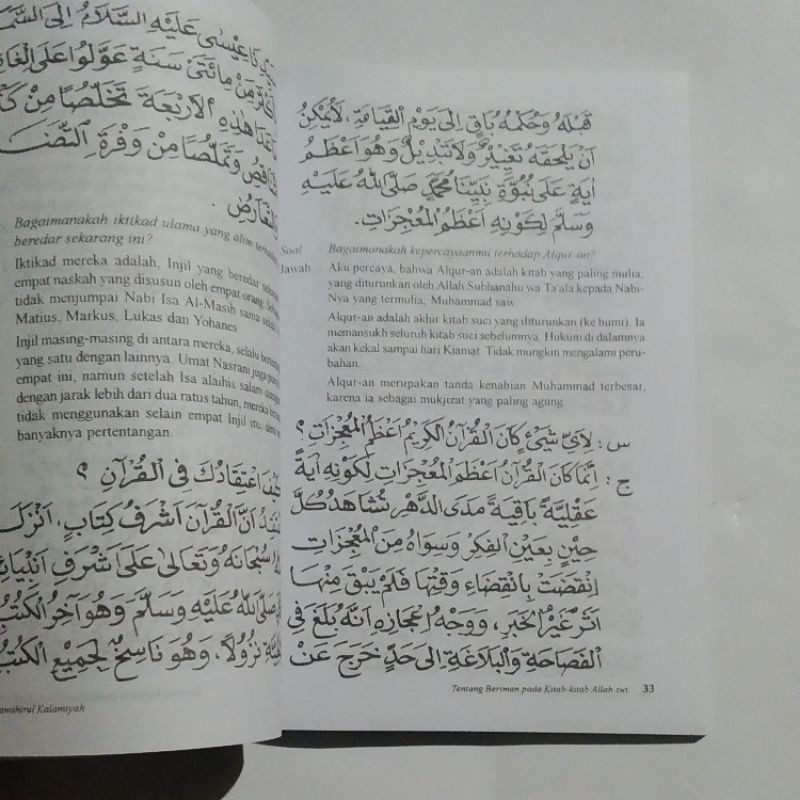 عِيْسٰى عَلَيْهِ السَّلَامُ اِلَى
مِنْ مِائَتَىْ سَنَةٍ عَوَّلُوْا عَلَى
هٰذِهِ الْاَرْبَعَةَ تَخَلُّصًا مِنْ
وَتَمَلُّصًا مِنْ وَفْرَةِ
Bagaimanakah iktikad ulama yang alim
beredar sekarang ini?
Iktikad mereka adalah, Injil yang beredar
empat naskah yang disusun oleh empat orang.
tidak menjumpai Nabi Isa Al-Masih sama
Matius, Markus, Lukas dan Yohanes
Injil masing-masing di antara mereka, selalu
yang satu dengan lainnya. Umat Nasrani juga
empat ini, namun setelah Isa alaihis salam
dengan jarak lebih dari dua ratus tahun, mereka
tidak menggunakan selain empat Injil itu,
banyaknya pertentangan.
اعْتِقَادُكَ فِى الْقُرْآنِ ؟
اَنَّ الْقُرْآنَ اَشْرَفُ كِتَابٍ، اَنْزَلَ
سُبْحَانَهُ وَتَعَالٰى عَلَى اَشْرَفِ
صَلَّى اللهُ عَلَيْهِ وَسَلَّمَ وَهُوَ آخِرُ الْكُتُبِ
نُزُوْلًا، وَهُوَ نَاسِخٌ لِجَمِيْعِ الْكُتُبِ
Kalamiyah
قَبْلَهُ وَحُكْمُهُ بَاقٍ اِلَى يَوْمِ الْقِيَامَةِ، لَايُمْكِنُ
اَنْ يَلْحَقَهُ تَغْيِيْرٌ وَلَاتَبْدِيْلٌ وَهُوَ اَعْظَمُ
اٰيَةٍ عَلَى نُبُوَّةِ نَبِيِّنَا مُحَمَّدٍ صَلَّى اللهُ عَلَيْهِ
وَسَلَّمَ لِكَوْنِهِ اَعْظَمَ الْمُعْجِزَاتِ.
Soal Bagaimanakah kepercayaanmu terhadap Alqur-an?
Jawab Aku percaya, bahwa Alqur-an adalah kitab yang paling mulia,
yang diturunkan oleh Allah Subhanahu wa Ta'ala kepada Nabi-
Nya yang termulia, Muhammad saw.
Alqur-an adalah akhir kitab suci yang diturunkan (ke bumi). Ia
memansukh seluruh kitab suci sebelumnya. Hukum di dalamnya
akan kekal sampai hari Kiamat. Tidak mungkin mengalami peru-
bahan.
Alqur-an merupakan tanda kenabian Muhammad terbesar,
karena ia sebagai mukjizat yang paling agung
س : لِاَيِّ شَيْئٍ كَانَ الْقُرْآنُ الْكَرِيْمُ اَعْظَمَ الْمُعْجِزَاتِ ؟
ج : اِنَّمَا كَانَ الْقُرْآنُ اَعْظَمَ الْمُعْجِزَاتِ لِكَوْنِهِ اٰيَةً
عَقْلِيَّةً بَاقِيَةً مَدَى الدَّهْرِ تُشَاهَدُ كُلَّ
حِيْنٍ بِعَيْنِ الْفِكْرِ وَسِوَاهُ مِنَ الْمُعْجِزَاتِ
اِنْقَضَتْ بِانْقِضَاءِ وَقْتِهَا فَلَمْ يَبْقَ مِنْهَا
اَثَرٌ غَيْرُ الْخَبَرِ، وَوَجْهُ اِعْجَازِهِ اَنَّهُ بَلَغَ فِى
الْفَصَاحَةِ وَالْبَلَاغَةِ اِلَى حَدٍّ خَرَجَ عَنْ
Tentang Beriman pada Kitab-kitab Allah swt. 33